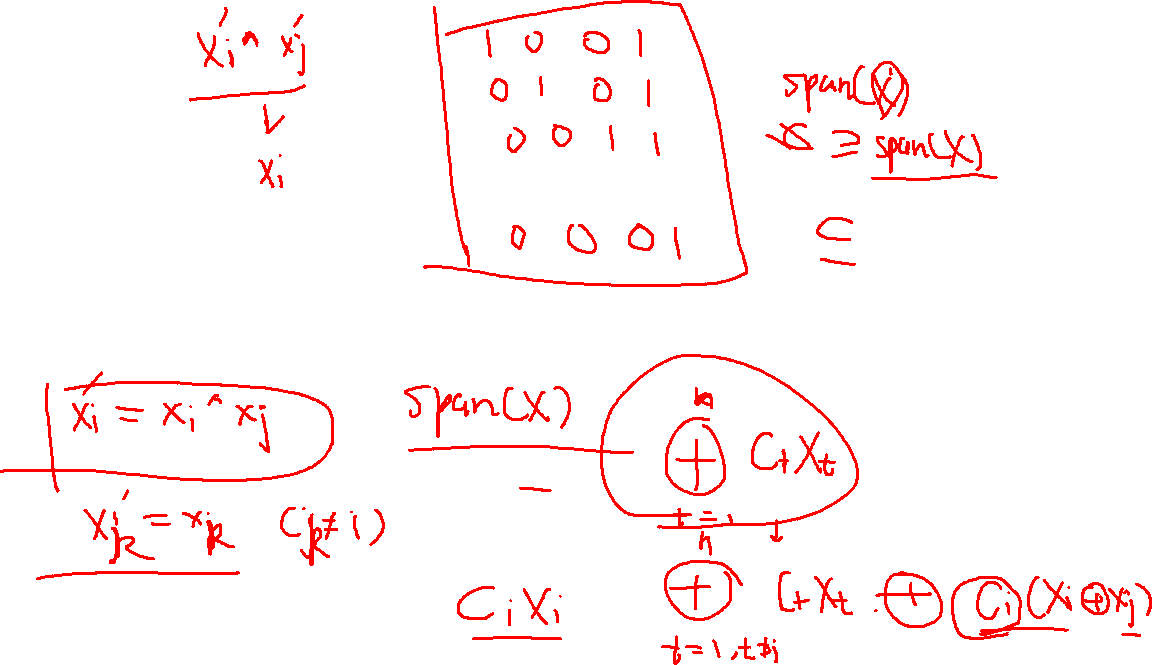 x'i ^ x'j
xi
1 0 0 1
0 1 0 1
0 0 1 1
0 0 0 1
span(X)
⊇ span(X)
⊆
x'i = xi ^ xj
x'k = xk (k≠i)
span(X)
n
⊕ CtXt
t=1
CiXi
n
⊕ CtXt ⊕ Ci(Xi⊕xj)
t=1, t≠i